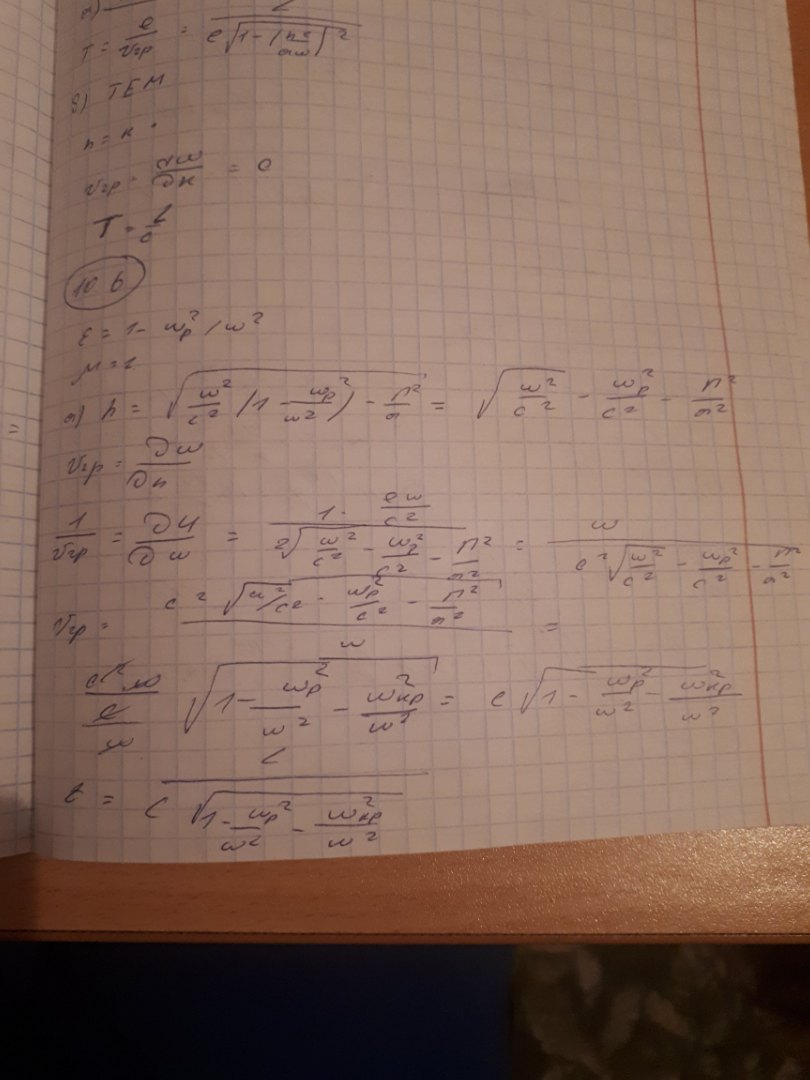 а)
T = ℓ/vгр = L/(c√(1-(πc/aω)²))
б) TEM
h = к
vгр = ∂ω/∂к = c
T = L/c
10.6
ε = 1 - ωp²/ω²
μ = 1
а) h = √(ω²/c² (1 - ωp²/ω²) - π²/a²) = √(ω²/c² - ωp²/c² - π²/a²)
vгр = ∂ω/∂h
1/vгр = ∂h/∂ω = (1 · 2ω/c²)/(2√(ω²/c² - ωp²/c² - π²/a²)) = ω/(c²√(ω²/c² - ωp²/c² - π²/a²))
vгр = (c²√(ω²/c² - ωp²/c² - π²/a²))/ω =
√(1 - ωp²/ω² - ωкр²/ω²) = c√(1 - ωp²/ω² - ωкр²/ω²)
t = L/(c√(1 - ωp²/ω² - ωкр²/ω²))